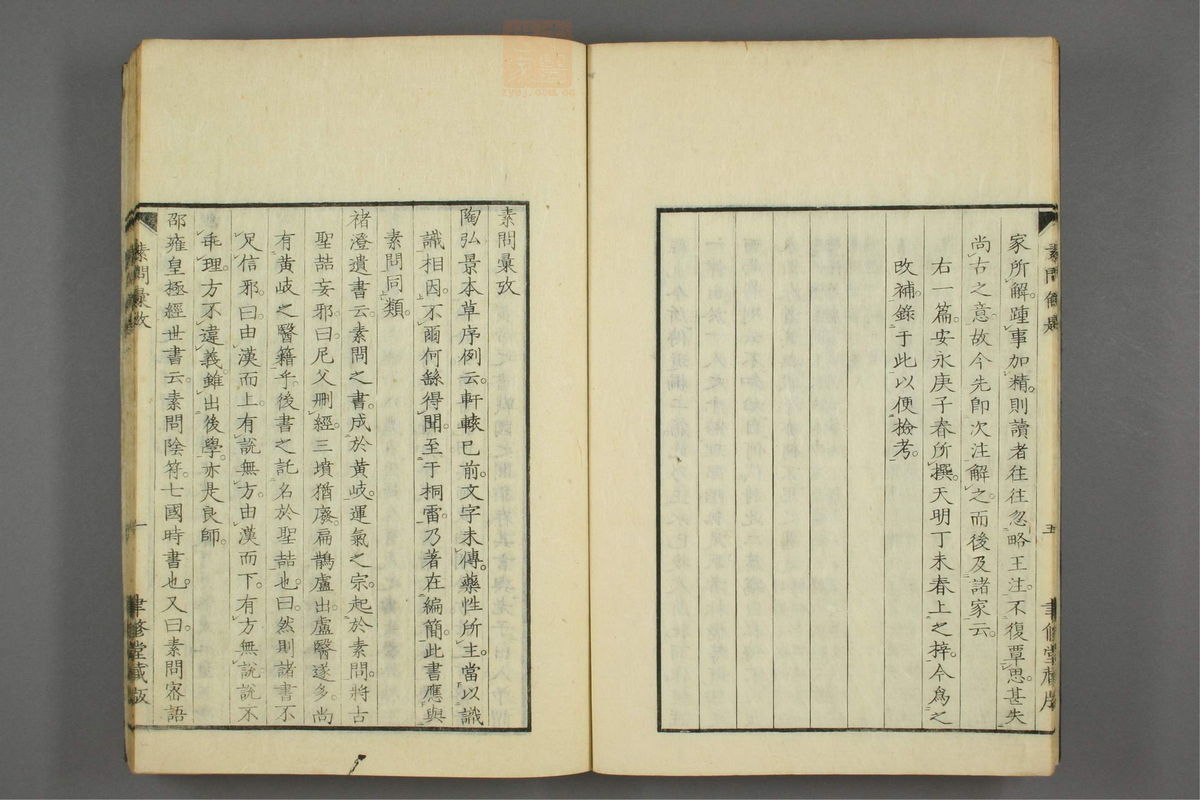 家所解。踵事加精。則讀者往往忽略王注。不復覃思。甚失
尚古之意。故今先卽次注解之。而後及諸家云。
右一篇。安永庚子春所撰。天明丁未春上之梓。今爲之
攺補。錄于此以便撿考。
五
素問彙攷
陶弘景本草序例云。軒轅已前。文字未傳。藥性所主。當以識
識相因。不爾何繇得聞。至于桐雷。乃著在編簡。此書應與
素問同類。
褚澄遺書云。素問之書。成於黃岐。運氣之宗。起於素問。將古
聖喆妄邪。曰。尼父刪經。三墳猶廢。扁鵲盧出。盧醫遂多。尚
有黃岐之醫籍乎。後書之託名於聖喆也。曰。然則諸書不
足信邪。曰。由漢而上。有說無方。由漢而下。有方無說。說不
乖理。方不違義。雖出後學。亦是良師。
邵雍皇極經世書云。素問陰符。七國時書也。又曰。素問密語
素問彙攷
一
聿修堂藏版